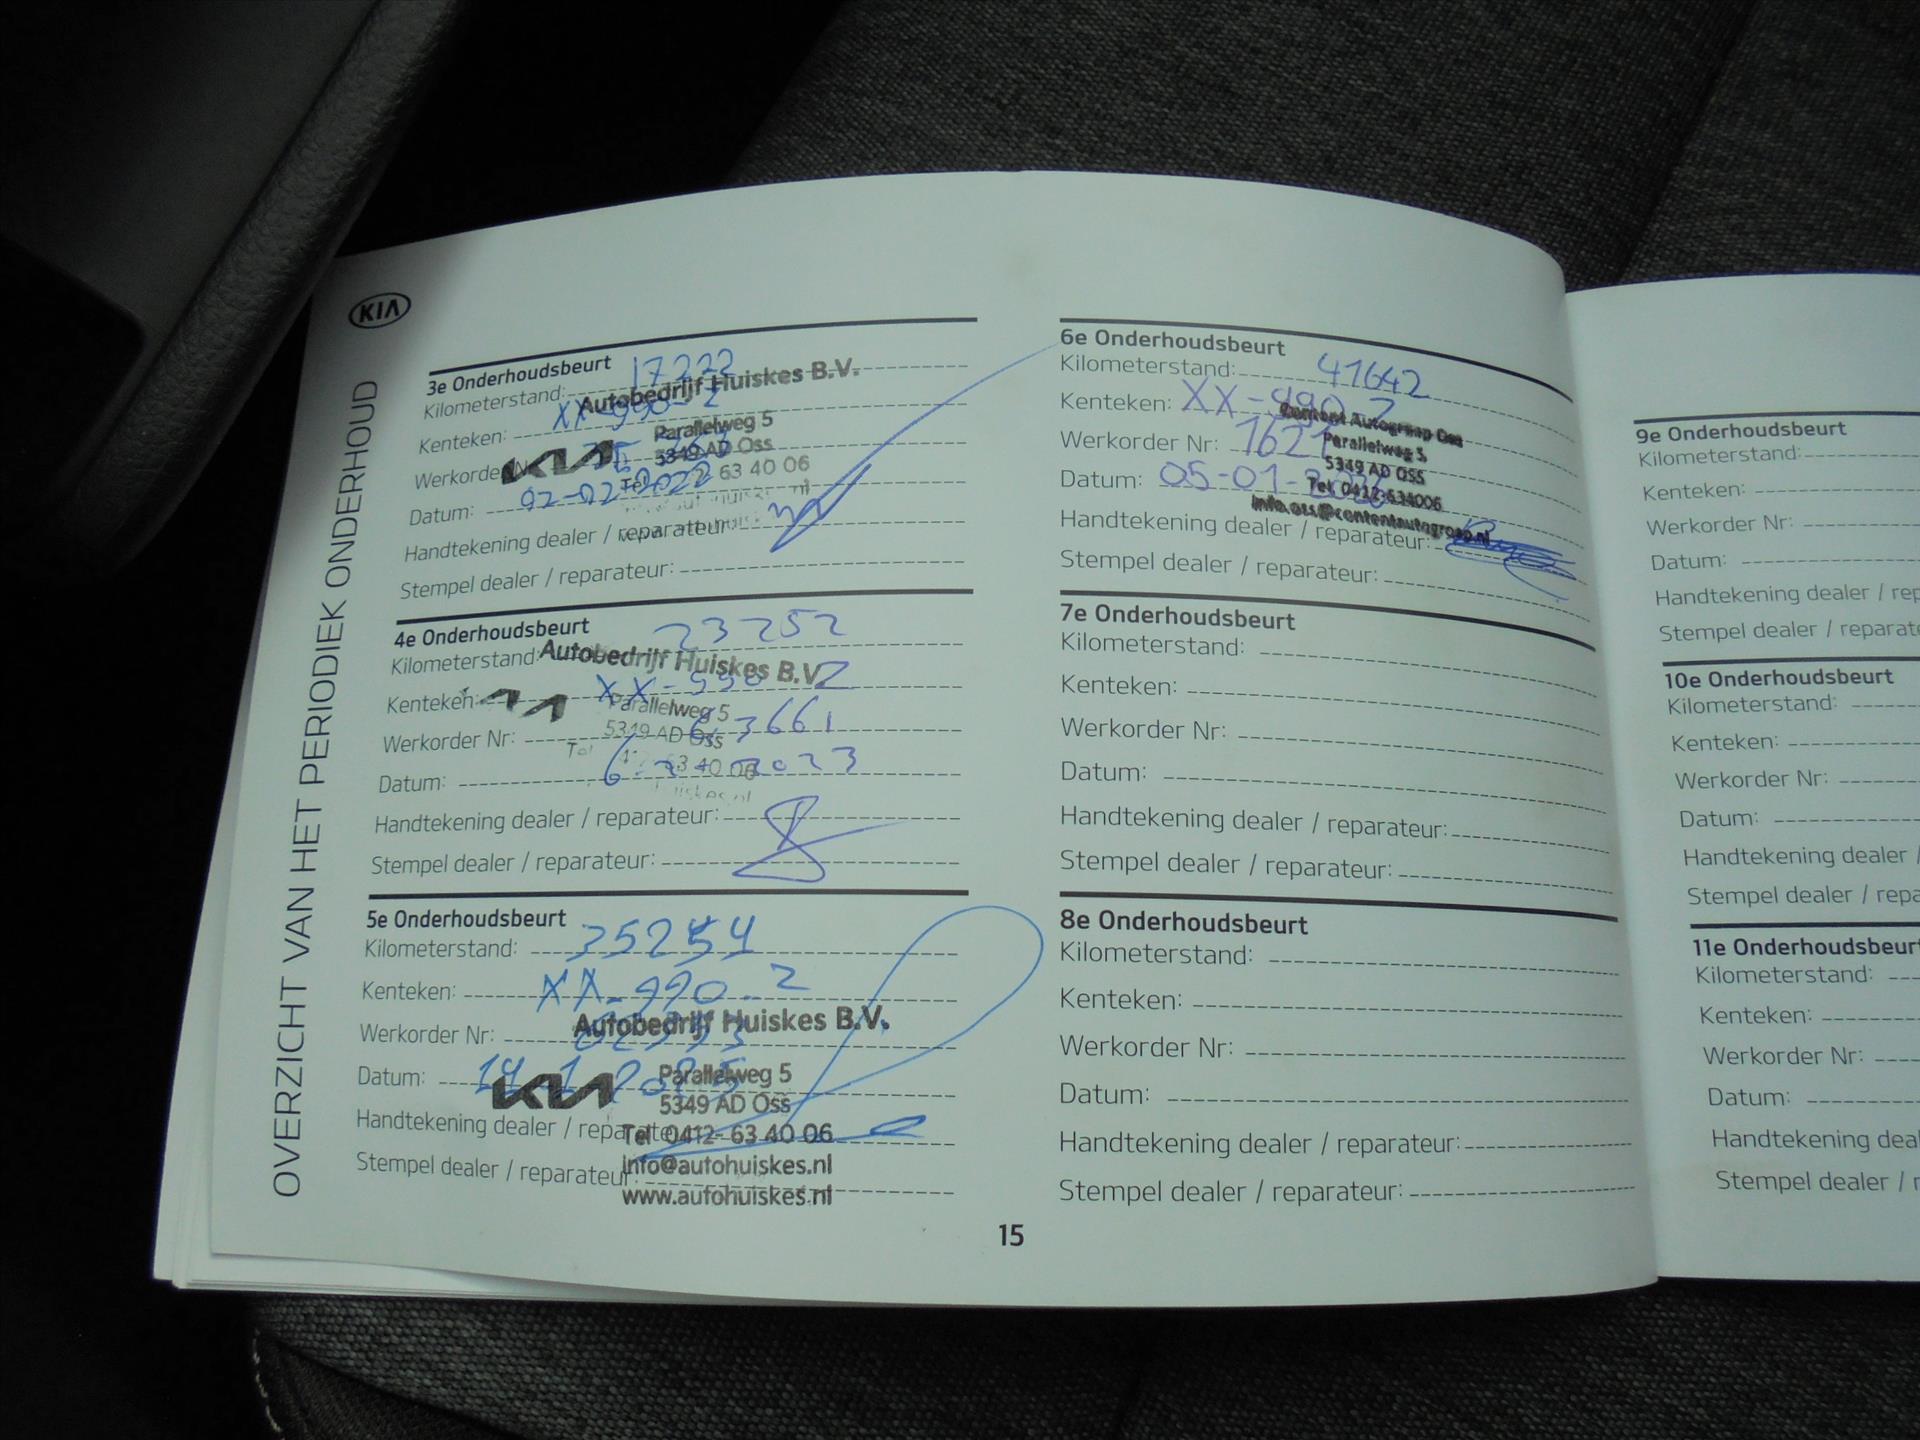 KIA
OVERZICHT VAN HET PERIODIEK ONDERHOUD
3e Onderhoudsbeurt
Kilometerstand: 17222
Autobedrijf Huiskes B.V.
Kenteken: XX-990-Z
Parallelweg 5
Werkorder
KIA
5349 AD Oss
Tel 63 40 06
Datum: 02-02-2022
Handtekening dealer / reparateur:
Stempel dealer / reparateur:
4e Onderhoudsbeurt
Kilometerstand: 23252
Autobedrijf Huiskes B.V.
Kenteken: XX-990-Z
Parallelweg 5
Werkorder Nr: 63661
5349 AD Oss
Tel 63 40 06
Datum: 2023
Handtekening dealer / reparateur:
Stempel dealer / reparateur:
5e Onderhoudsbeurt
Kilometerstand: 35254
Kenteken: XX-990-Z
Werkorder Nr:
Autobedrijf Huiskes B.V.
Datum: 14-1-2025
KIA
Parallelweg 5
5349 AD Oss
Handtekening dealer / reparateur:
Tel 0412-63 40 06
Stempel dealer / reparateur:
info@autohuiskes.nl
www.autohuiskes.nl
6e Onderhoudsbeurt
Kilometerstand: 41642
Kenteken: XX-990-Z
Autogroep Oss
Werkorder Nr: 1621
Parallelweg 5,
5349 AD OSS
Datum: 05-01-
Tel. 0412-634006
info.oss@contentautogroep.nl
Handtekening dealer / reparateur:
Stempel dealer / reparateur:
7e Onderhoudsbeurt
Kilometerstand:
Kenteken:
Werkorder Nr:
Datum:
Handtekening dealer / reparateur:
Stempel dealer / reparateur:
8e Onderhoudsbeurt
Kilometerstand:
Kenteken:
Werkorder Nr:
Datum:
Handtekening dealer / reparateur:
Stempel dealer / reparateur:
15
9e Onderhoudsbeurt
Kilometerstand:
Kenteken:
Werkorder Nr:
Datum:
Handtekening dealer / rep
Stempel dealer / reparat
10e Onderhoudsbeurt
Kilometerstand:
Kenteken:
Werkorder Nr:
Datum:
Handtekening dealer /
Stempel dealer / repa
11e Onderhoudsbeur
Kilometerstand:
Kenteken:
Werkorder Nr:
Datum:
Handtekening deal
Stempel dealer / r